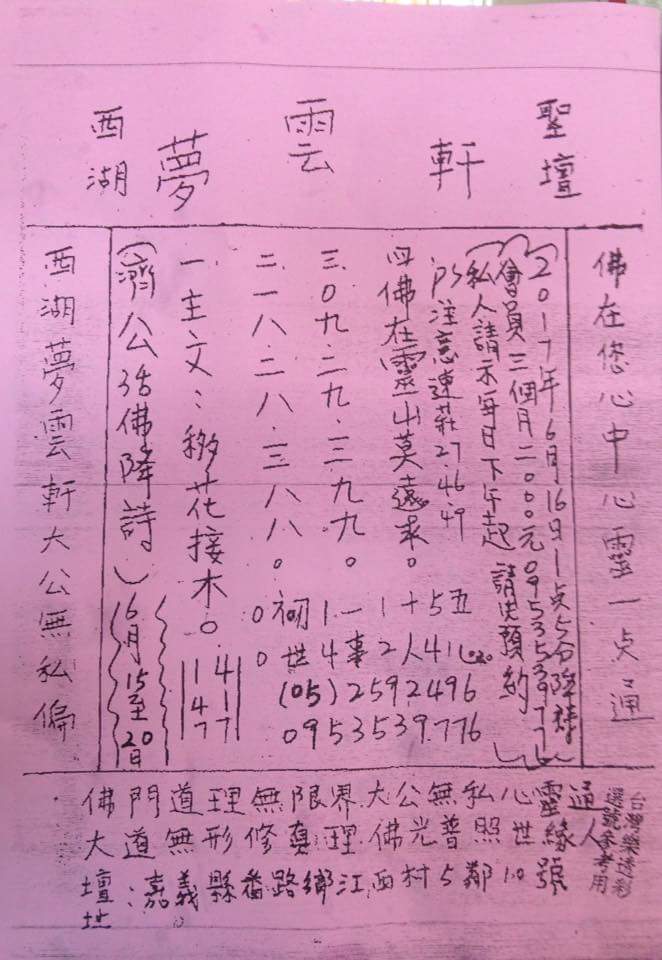 西湖夢雲軒聖壇
佛在您心中心靈一点通
(2017年6月16日1点5分降詩)
(會員三個月二000元0953539776)
(私人請示每日下午起請先預約)
PS注意連莊27.46.49
四佛在靈山莫遠求。
三.0九.二九.三九九。
二.一八.二八.三八八。
一主文:移花接木。
(濟公活佛降詩)
6月15至20日
14
41
77
0初1一1十5五
0世4事2人41
(05)2592496
0953539776
西湖夢雲軒大公無私偏
佛門道理無限界大公無私心靈通
大道無形修真理佛光普照世緣人
壇址:嘉義縣番路鄉江西村5鄰10號
台灣樂透彩
選號參考用